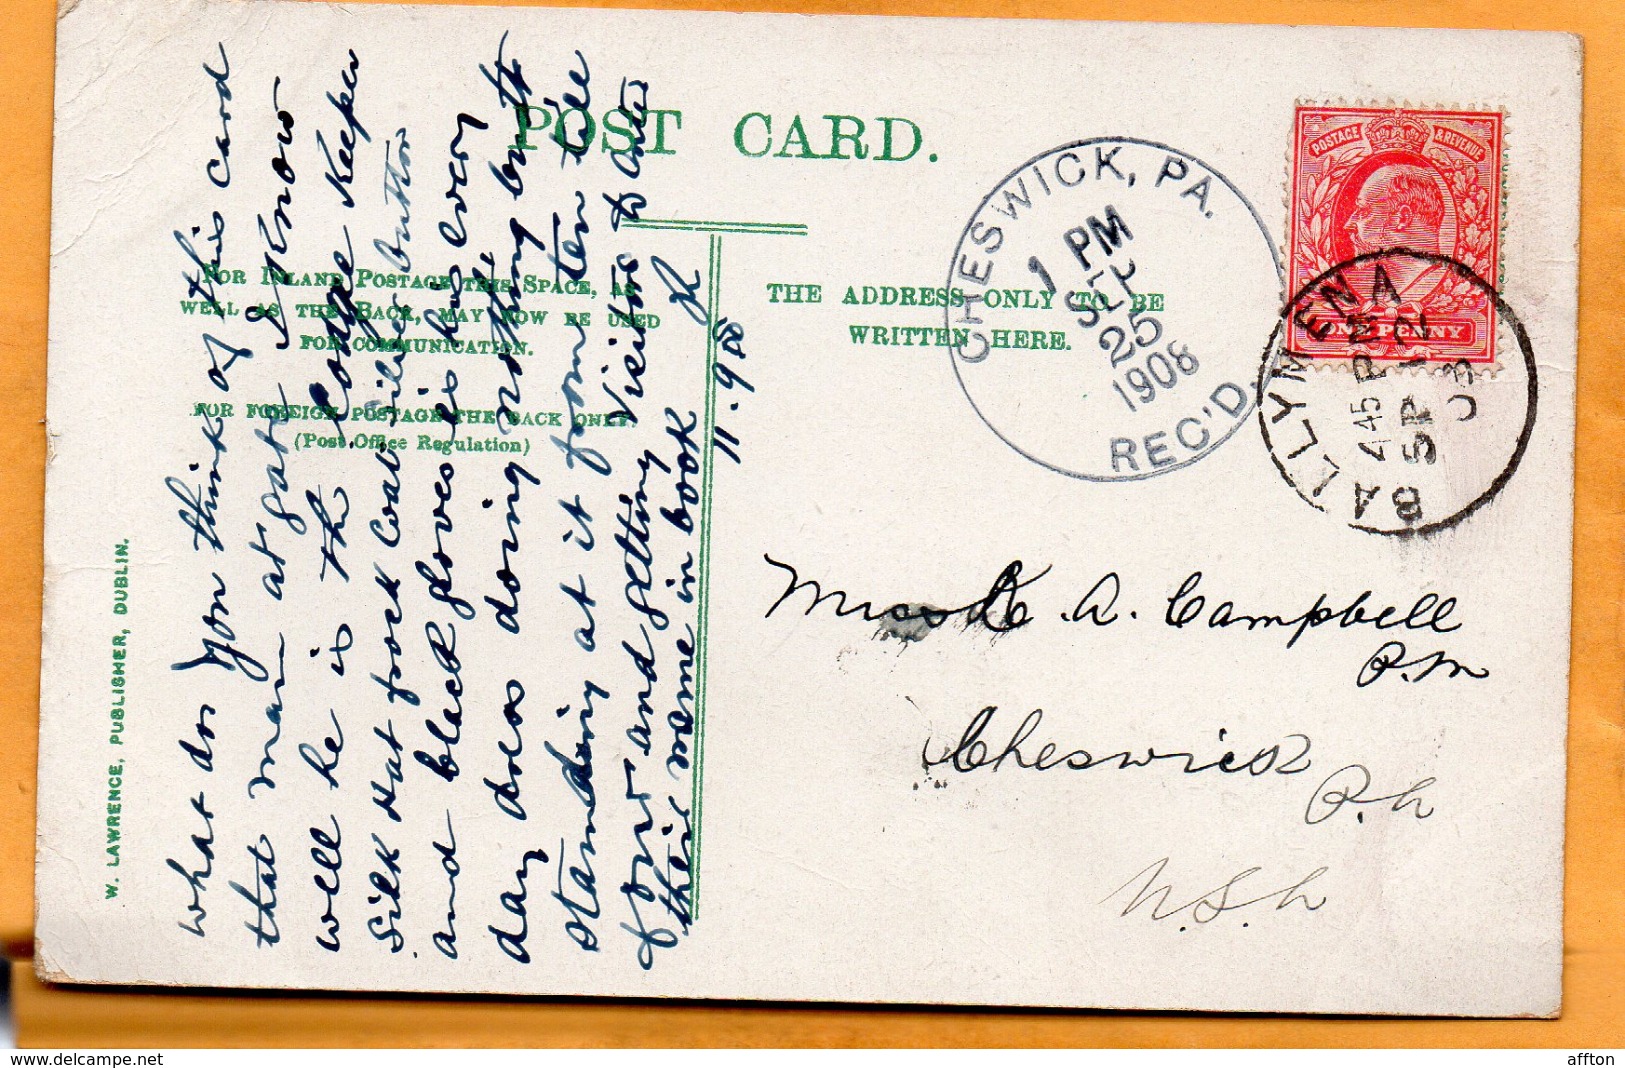 POST CARD.
FOR INLAND POSTAGE THIS SPACE, AS
WELL AS THE BACK, MAY NOW BE USED
FOR COMMUNICATION.
FOR FOREIGN POSTAGE THE BACK ONLY.
(Post Office Regulation)
THE ADDRESS ONLY TO BE
WRITTEN HERE.
W. LAWRENCE, PUBLISHER, DUBLIN.
what do you think of this card
that man at gate I know
well he is the Lodge Keeper
Silk Hat frock Coat silver button
and black gloves is his every
day dress doing nothing but
standing at it from ten till
four and getting Visitors to enter
their name in book
11.9.08
CHESWICK, PA.
1 PM
SEP
25
1908
REC'D.
POSTAGE & REVENUE
ONE PENNY
BALLYMENA
445 PM
SP 12
08
Miss K. A. Campbell
P.M
Cheswick
P.a
U.S.a
affton
www.delcampe.net